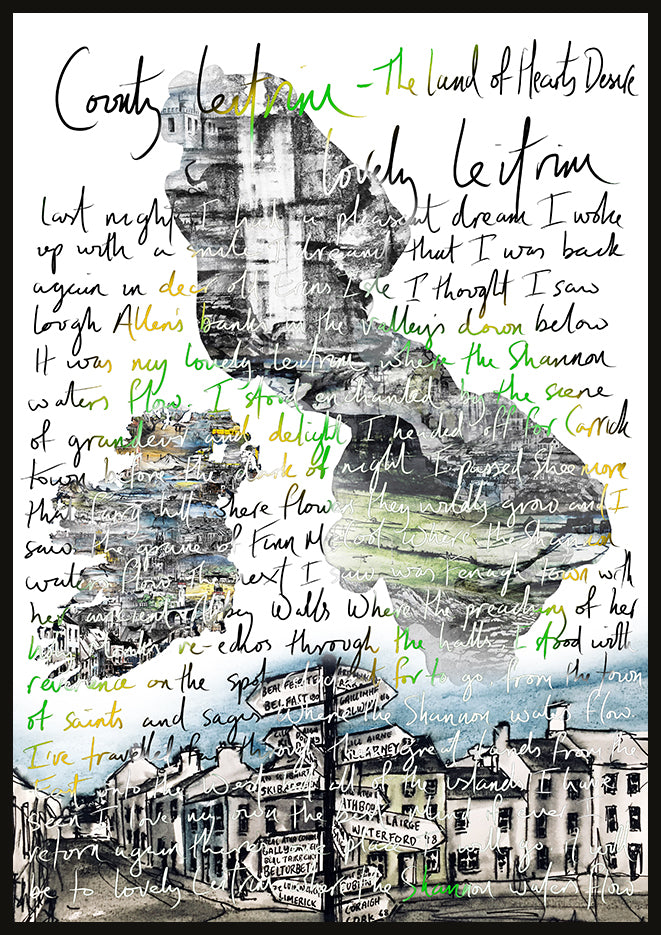 County Leitrim - The Land of Hearts Desire
Lovely Leitrim
Last night I had a pleasant dream I woke
up with a smile I dreamt that I was back
again in dear old Erins Isle I thought I saw
Lough Allen's banks in the valleys down below
It was my lovely Leitrim where the Shannon
waters flow. I stood enchanted by the scene
of grandeur and delight I headed off for Carrick
town before the dark of night I passed Sheemore
that fairy hill where flowers they wildly grow and I
saw the grave of Finn McCool where the Shannon
waters flow the next I saw was Fenagh town with
her ancient Abbey Walls Where the preaching of her
re-echos through the halls I stood with
reverence on the spot for to go from the town
of saints and sages where the Shannon waters flow
I've travelled far through the great lands from the
East unto the West of all of the islands I have
seen I love my own the best
return again there is place I will go it will
be to lovely Leitrim where the Shannon waters flow
BEAL FEIRSTE
BELFAST
GAILLIMH
CILL AIRNE
KILLARNEY
SKIBB
PORT LAIRGE
WATERFORD 48
BELTURBET
LIMERICK
DUBLIN
CORCAIGH
CORK 68